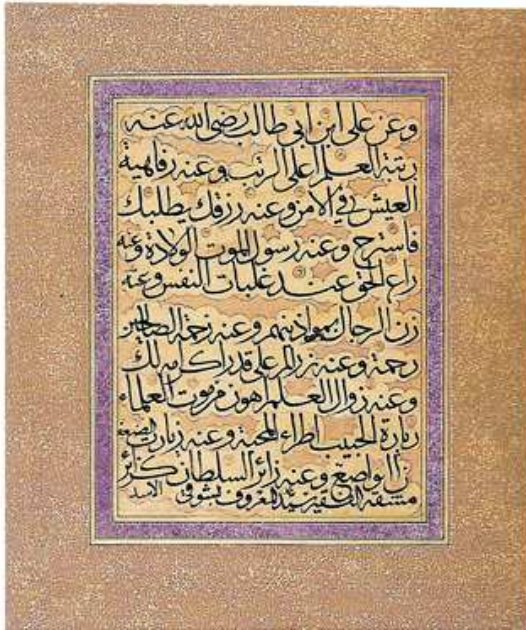 وعن علي ابن ابي طالب رضى الله عنه
رتبة العلم اعلى الرتب وعنه رفاهية
العيش في الامن وعنه رزقك يطلبك
فاسترح وعنه رسول الموت الولادة وعنه
راع الحق عند غلبات النفس وعنه
زن الرجال بموازينهم وعنه زحمة الصالحين
رحمة وعنه زر المرء على قدر اكرامه لك
وعنه زوال العلم اهون من موت العلماء
زيارة الحبيب اطراء المحبة وعنه
الواضع وعنه زائر السلطان كزائر
الاسد مشقه الفقير محمد المعروف بشوقي